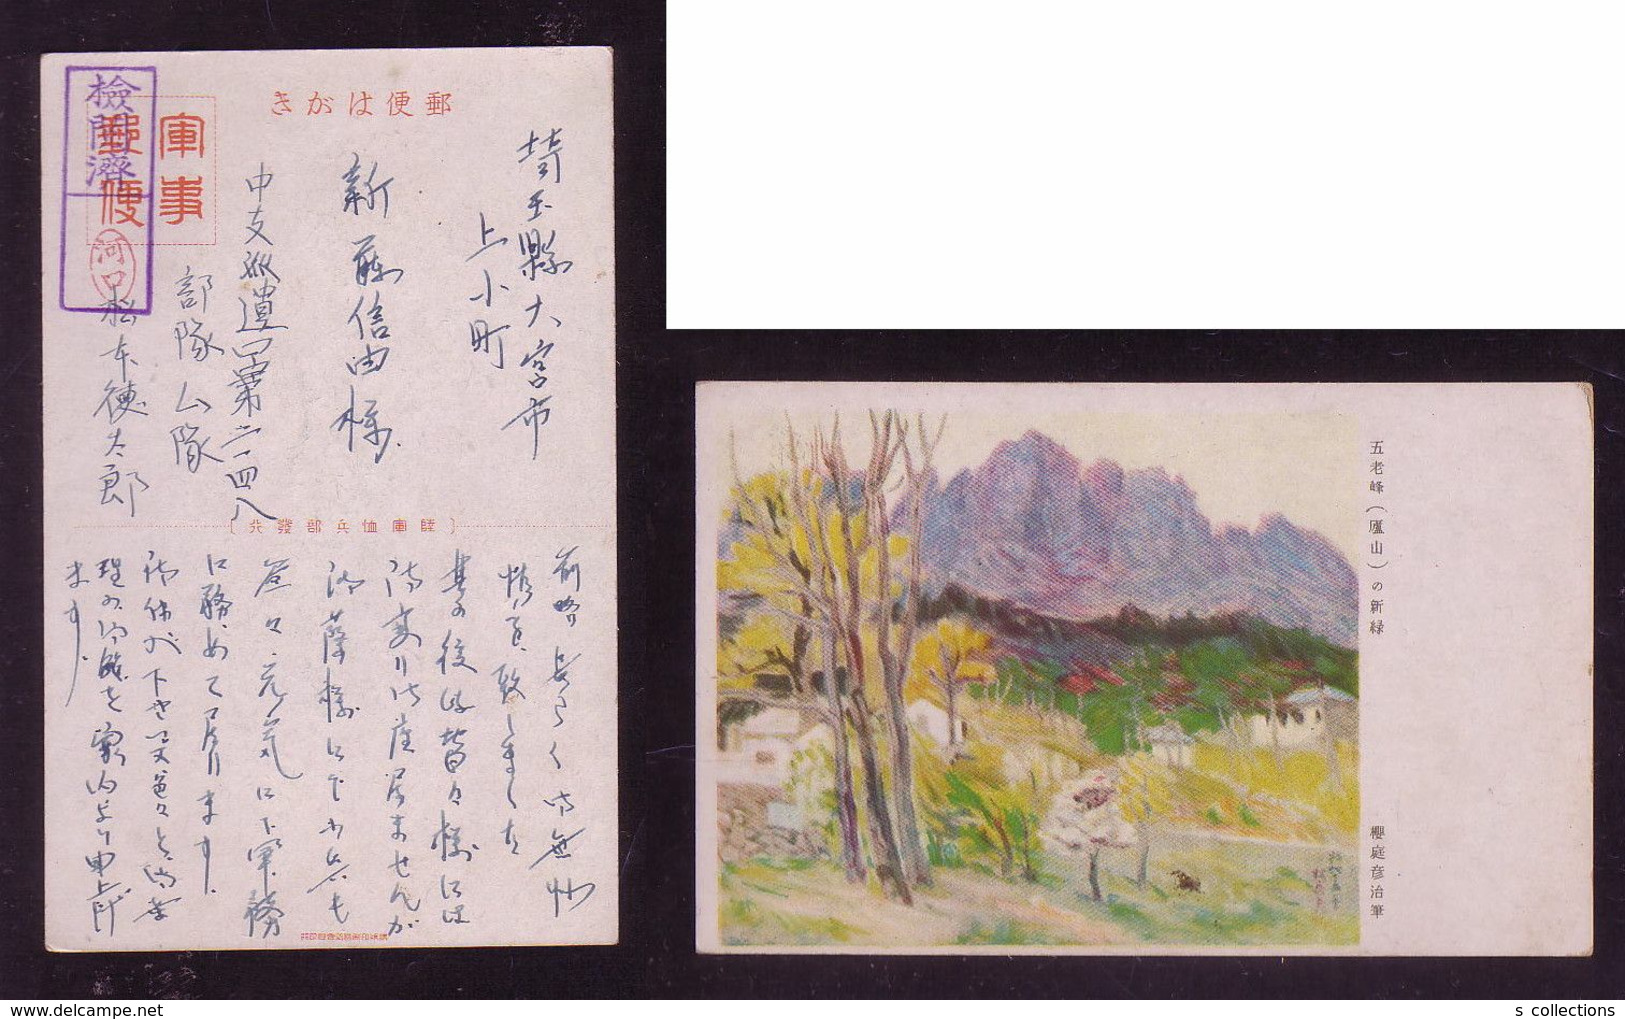 郵便はがき
軍事
郵便
檢閲濟
河口
埼玉縣大宮市
上小町
新藤信由様
中支派遣呂第二一四八
部隊ム隊
松本徳太郎
〔陸軍恤兵部發行〕
前略 長らく御無沙
汰を致しました
其の後は皆々様には
御変り御座居ませんか
御蔭様にて小兵も
益々元気に軍務
に務めて居ります
ます
五老峰(廬山)の新緑
櫻庭彦治筆
s collections